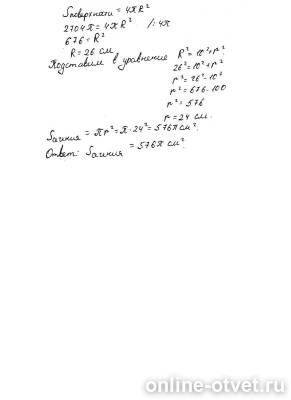 Sповерхности = 4πR²
2704π = 4πR² /:4π
676 = R²
R = 26 см.
Подставим в уравнение R² = 10² + r²
26² = 10² + r²
r² = 26² - 10²
r² = 676 - 100
r² = 576
r = 24 см.
Sсечения = πr² = π · 24² = 576π см².
Ответ: Sсечения = 576π см²
online-otvet.ru